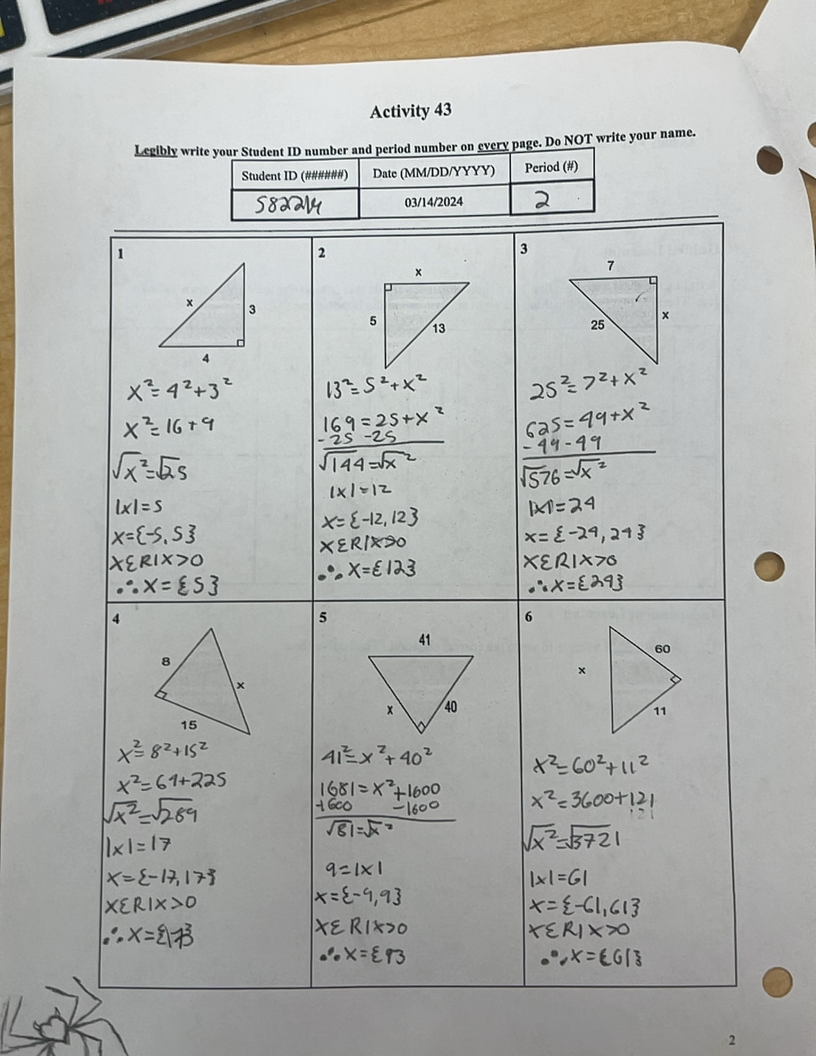 Activity 43
Legibly write your Student ID number and period number on every page. Do NOT write your name.
Student ID (######) Date (MM/DD/YYYY) Period (#)
03/14/2024 2
1
x
3
4
x²=4²+3²
x²=16+9
√x²=√25
|x|=5
x={-5,5}
xεR|x>0
∴x={5}
2
x
5
13
13²=5²+x²
169=25+x²
-25 -25
√144=√x²
|x|=12
x={-12,12}
xεR|x>0
∴x={12}
3
7
25
x
25²=7²+x²
625=49+x²
-49-49
√576=√x²
|x|=24
x={-24,24}
xεR|x>0
∴x={24}
4
8
x
15
x²=8²+15²
x²=64+225
√x²=√289
|x|=17
x={-17,17}
xεR|x>0
∴x={17}
5
41
x
40
41²=x²+40²
1681=x²+1600
-1600 -1600
√81=√x²
9=|x|
x={-9,9}
xεR|x>0
∴x={9}
6
60
x
11
x²=60²+11²
x²=3600+121
√x²=√3721
|x|=61
x={-61,61}
xεR|x>0
∴x={61}
2